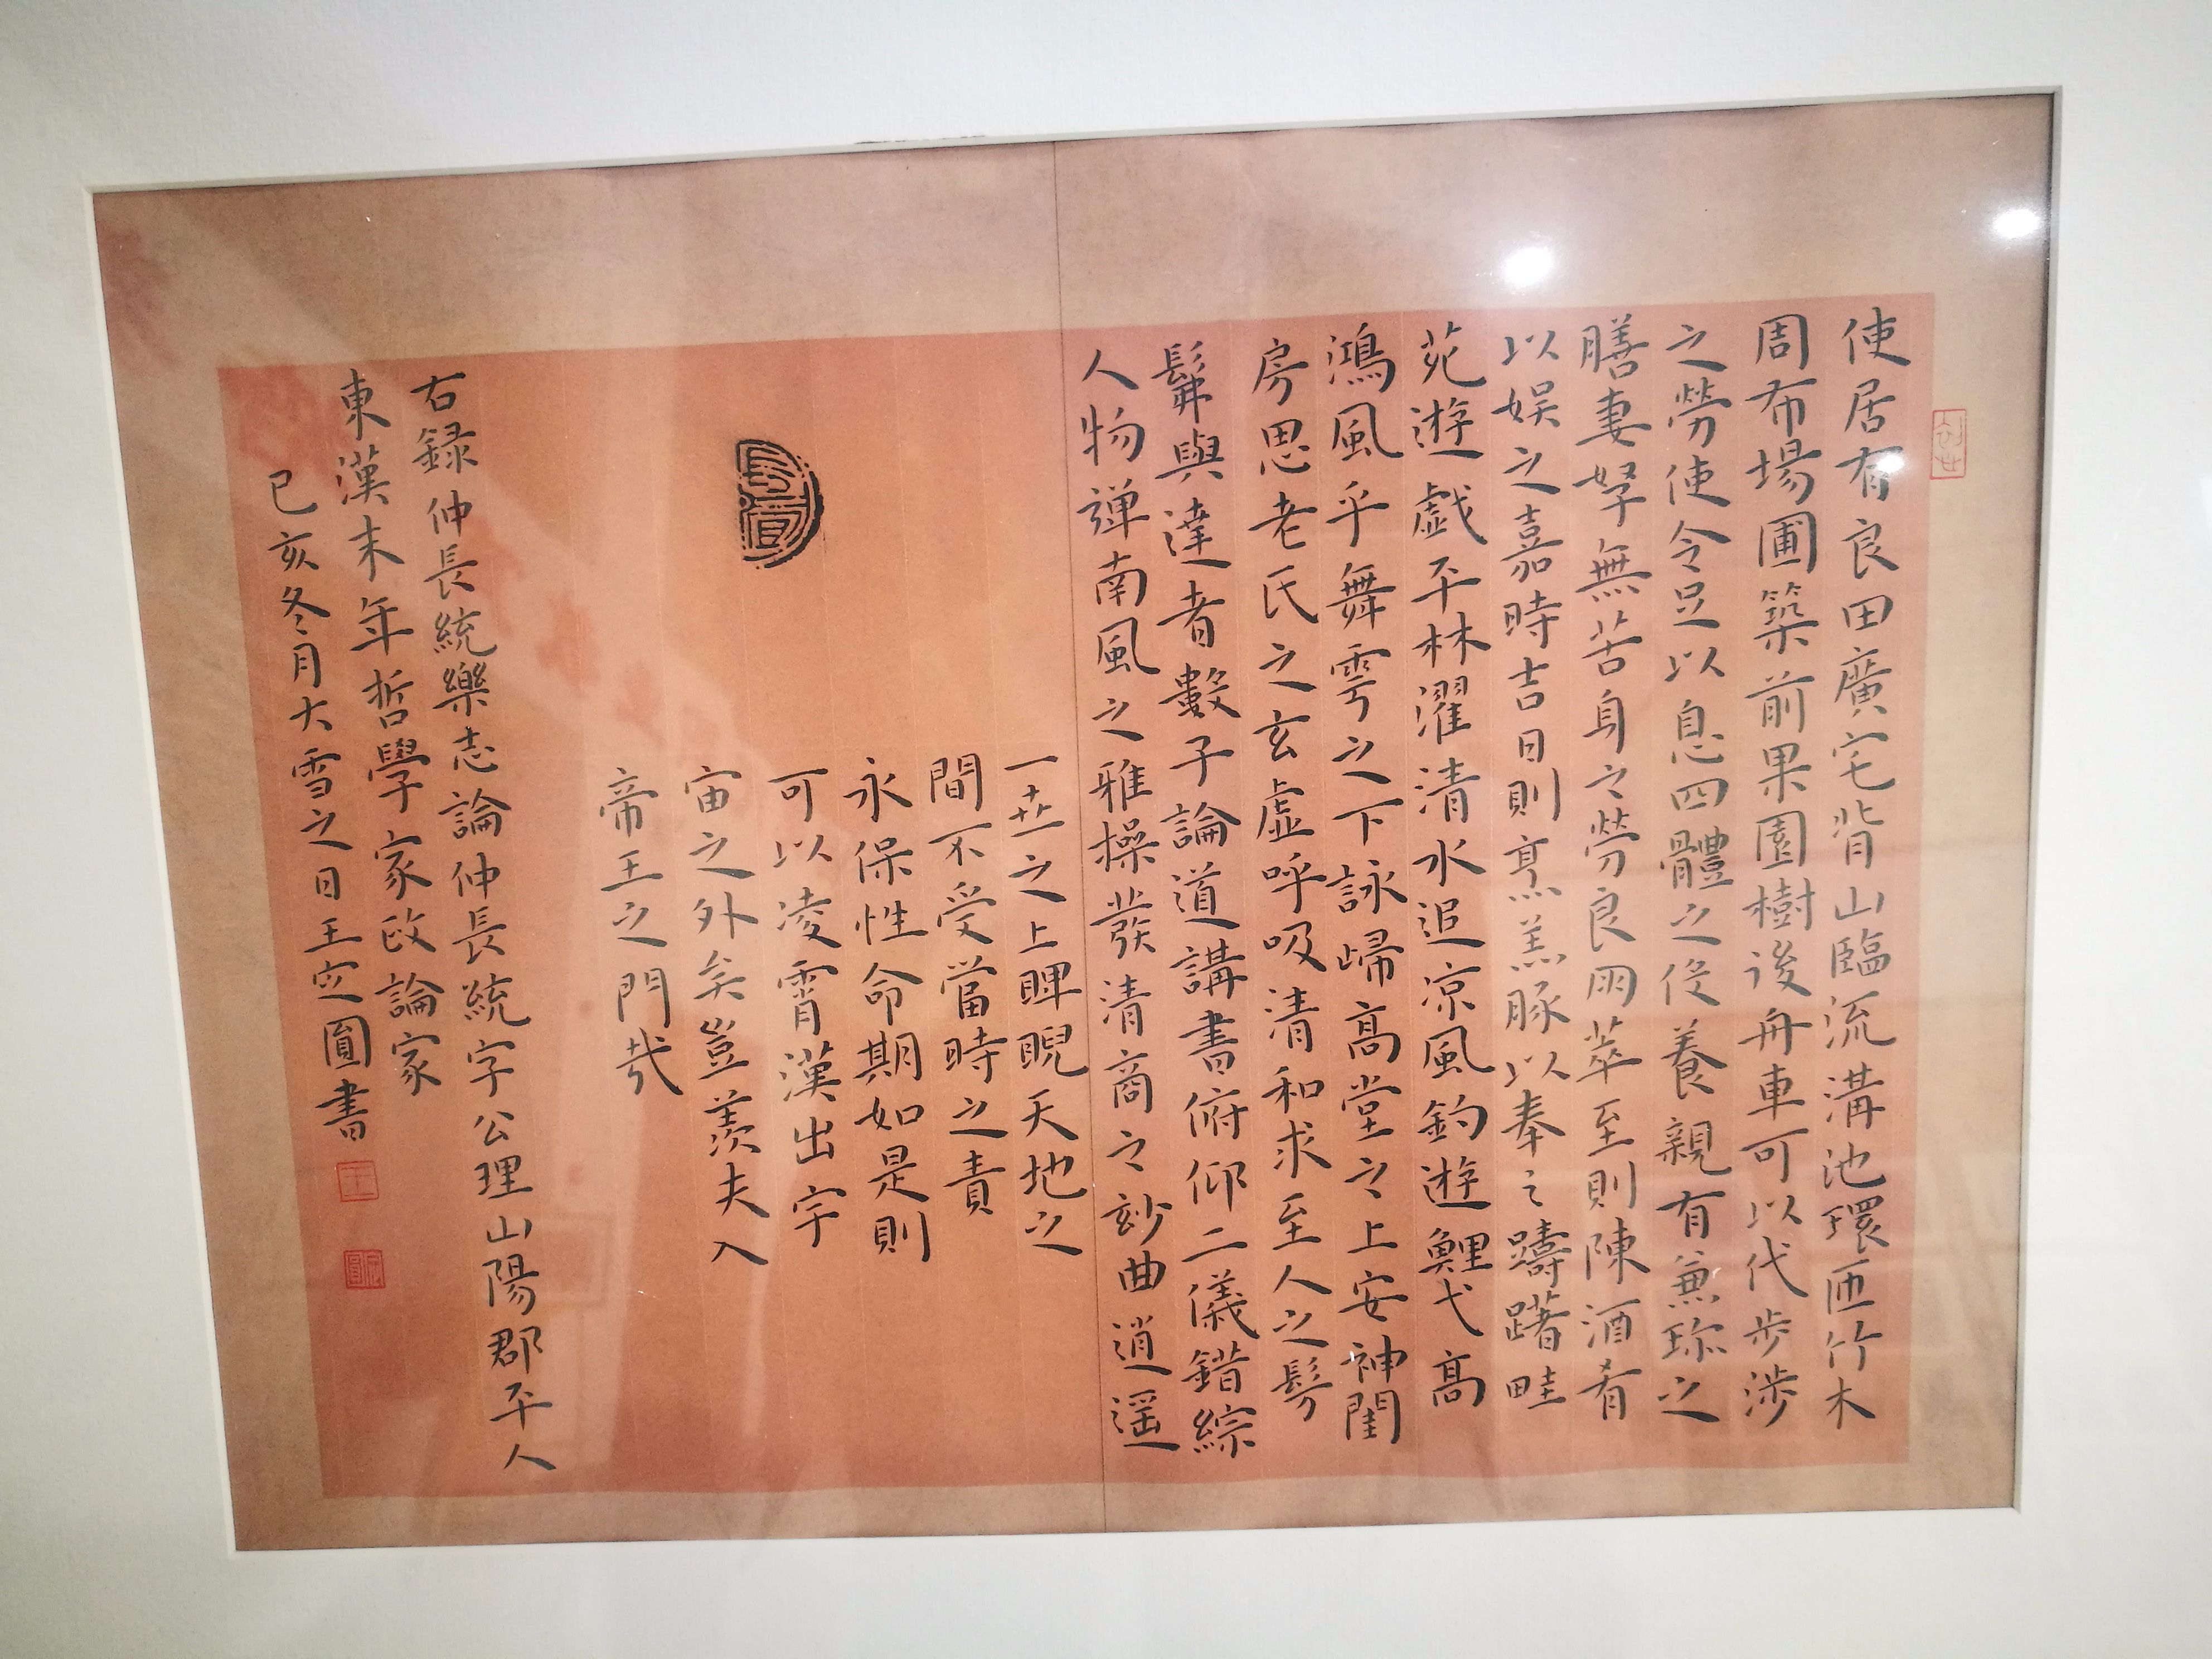 使居有良田廣宅背山臨流溝池環匝竹木
周布場圃築前果園樹後舟車可以代步涉
之勞使令足以息四體之役養親有兼珎之
膳妻孥無苦身之勞良朋萃至則陳酒肴
以娱之嘉時吉日則烹羔豚以奉之躊躇畦
苑遊戯平林濯清水追涼風釣遊鯉弋高
鴻風乎舞雩之下詠歸高堂之上安神閨
房思老氏之玄虛呼吸清和求至人之髣
髴與達者數子論道講書俯仰二儀錯綜
人物弹南風之雅操發清商之玅曲逍遥
一丗之上睥睨天地之
間不受當時之責
永保性命期如是則
可以凌霄漢出宇
宙之外矣豈羨夫入
帝王之門哉
右録仲長統樂志論仲長統字公理山陽郡平人
東漢末年哲學家政論家
己亥冬月大雪之日王空圓書